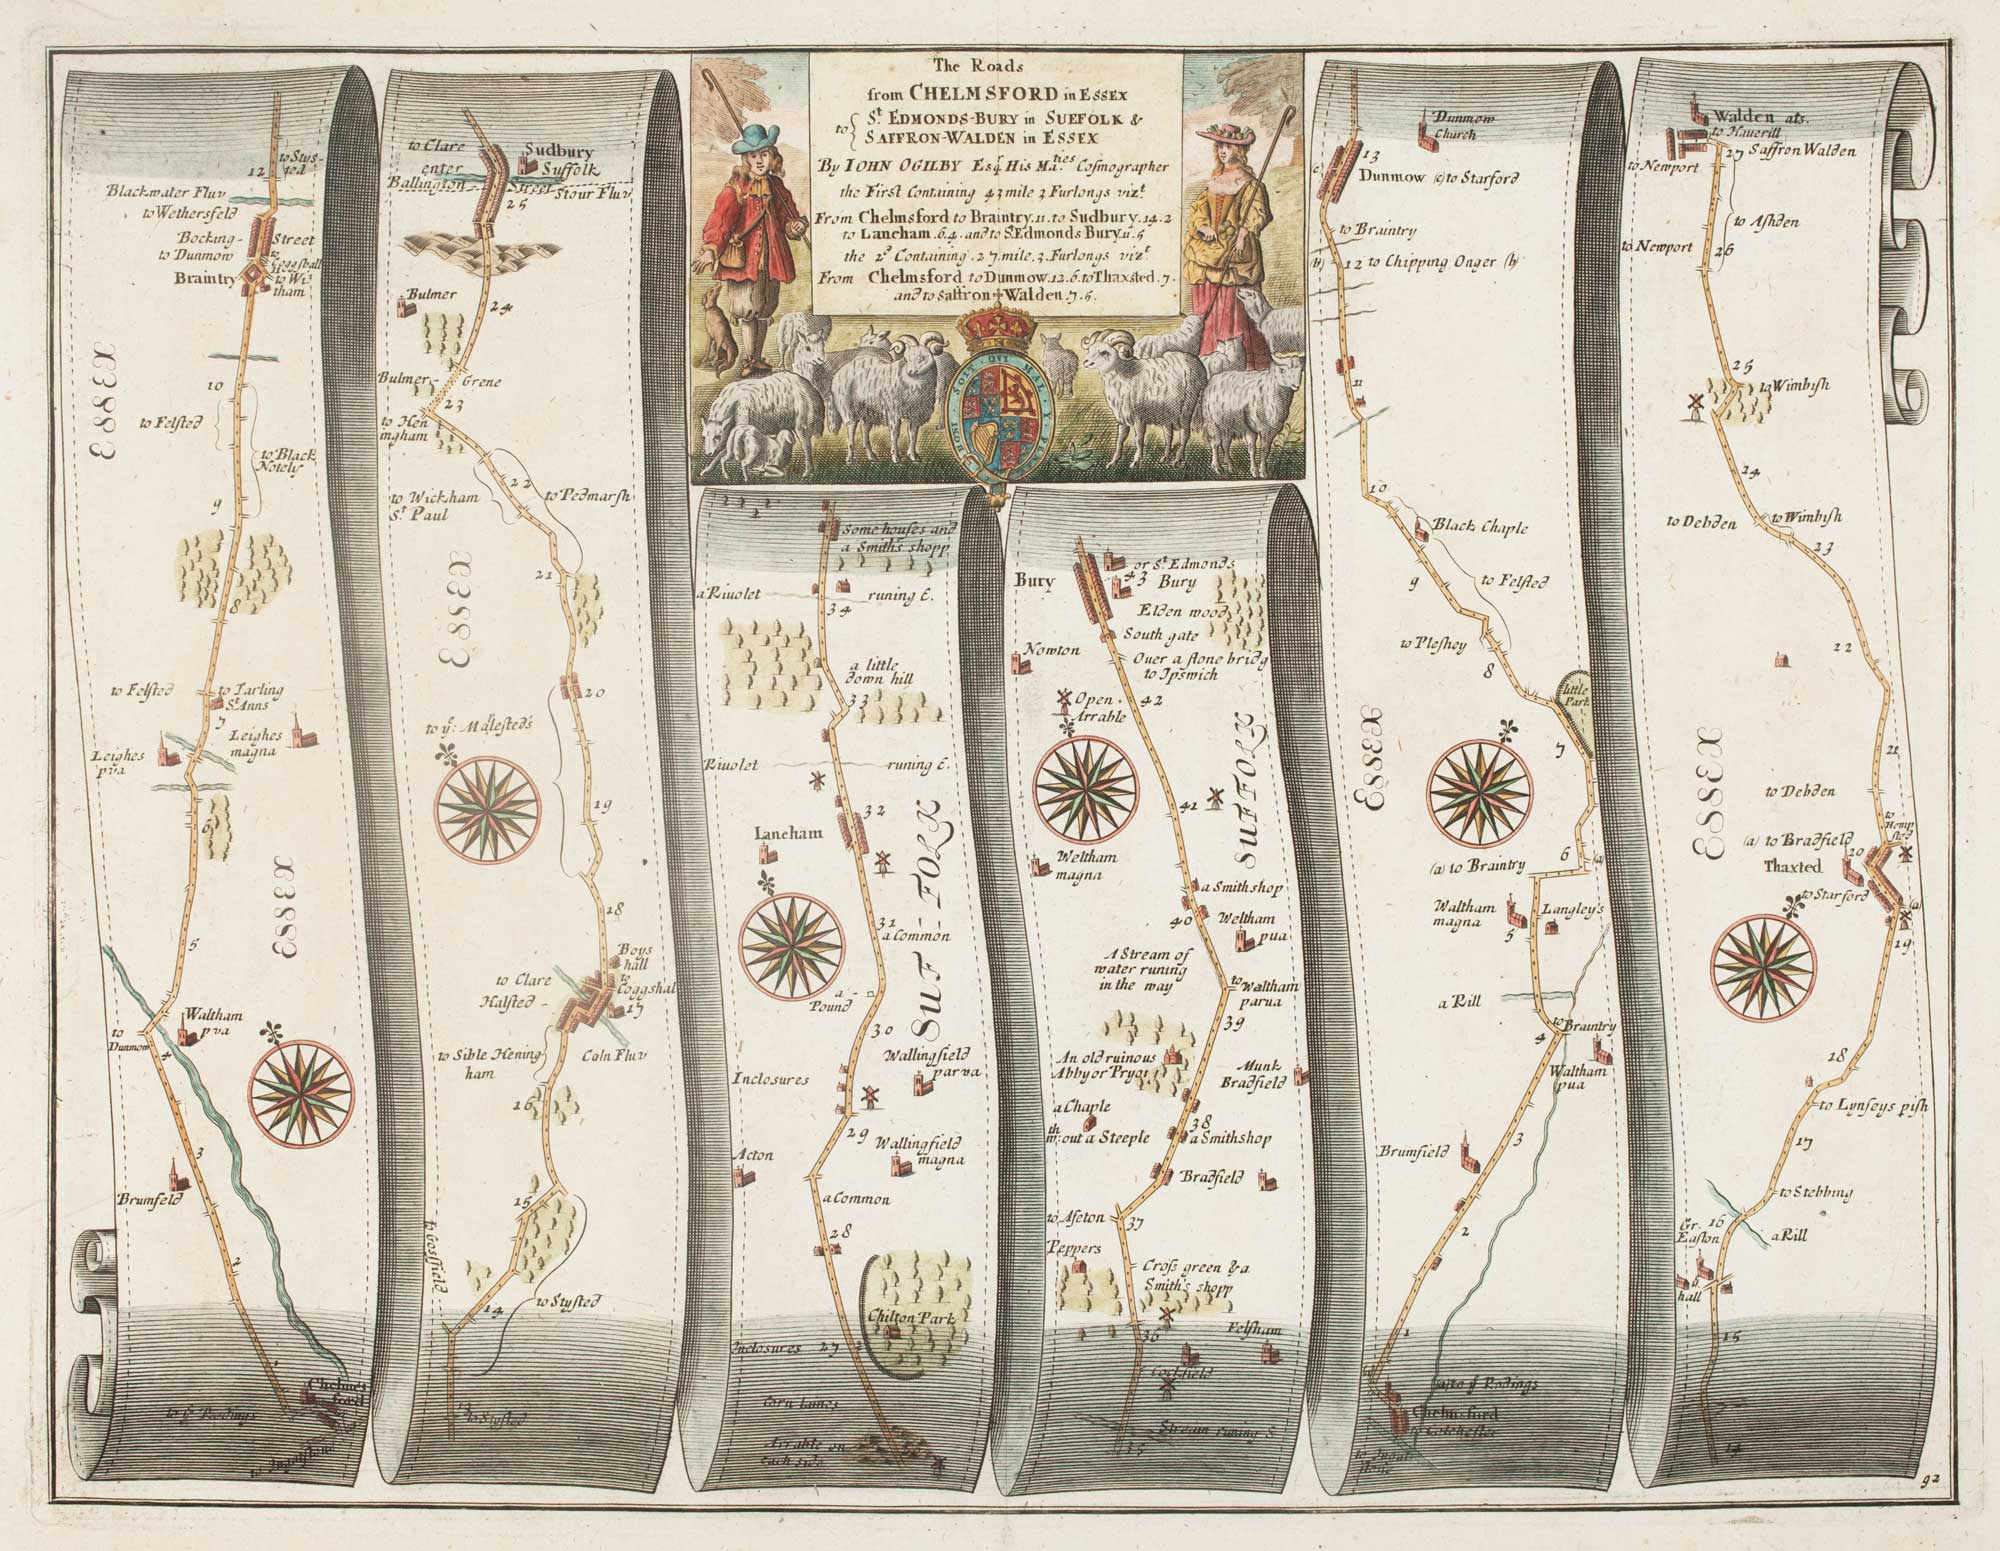 The Roads
from CHELMSFORD in ESSEX
to { St EDMONDS-BURY in SUFFOLK &
SAFFRON-WALDEN in ESSEX
By IOHN OGILBY Esqr. His Maties Cosmographer
the First Containing 43 mile 3 Furlongs vizt.
From Chelmsford to Braintry. 11. to Sudbury. 14. 2
to Lancham. 6. 4. and to St Edmonds Bury. 11. 5
the 2d Containing. 27. mile. 3. Furlongs vizt
From Chelmsford to Dunmow. 12. 6. to Thaxsted. 7.
and to Saffron Walden. 7. 5.
HONI SOIT QUI MAL Y P
12
to Stysted
Blackwater Fluv
to Wethersfeld
Bocking-Street
to Dunmow
to Coggshall
Braintry
to Witham
10
ESSEX
to Felsted
to Black Notely
9
8
to Felsted
to Tarling
St. Anns
7
Leighes magna
Leighes pva
6
ESSEX
5
Waltham pva
to Dunmow
4
3
Brumfeld
2
1
Chelmesford
to ye Rodings
to Ingatstone
to Clare
Sudbury
Suffolk
enter
Ballington
Street
Stour Fluv
25
24
Bulmer
Bulmer-Grene
23
to Heningham
22
to Wickham St Paul
to Pedmarsh
21
ESSEX
20
to ye Malesteds
19
18
Boys hall
to Clare
to Coggshal
Halsted -
17
to Sible Heningham
Coln Fluv
16
15
to Gosffield
14
to Stysted
13
to Stysted
Some houses and
a Smiths shopp
a Rivolet runing E.
34
a little down hill
33
Rivolet runing E.
32
Lancham
SUF-FOLK
31
a Common
a Pound
30
Wallingfield parva
Inclosures
29
Wallingfield magna
Acton
a Common
28
Chilton Park
Inclosures
27
Corn Lanes
Arrable on each side
Bury
or St. Edmonds Bury
43
Elden wood
South gate
Nowton
Over a stone bridg
to Ipswich
42
Open Arrable
SUFFOLK
41
Weltham magna
a Smith shop
40
Weltham pua
A Stream of
water runing
in the way
to Waltham parua
39
An old ruinous
Abby or Pryory
Munk Bradfield
a Chaple
wth: out a Steeple
38
a Smithshop
Bradfield
to Aseton
37
Peppers
Cross green & a
Smith's shopp
36
Felsham
Cockfield
Stream runing E
35
Dunmow Church
13
(c)
Dunmow
(c) to Starford
to Braintry
(b)
12
to Chipping Onger (b)
11
10
Black Chaple
9
to Felsted
to Pleshey
8
little Park
7
ESSEX
6
(a)
(a) to Braintry
Waltham magna
Langley's
5
a Rill
to Braintry
4
Waltham pua
3
Brumfield
2
1
(a) to ye Rodings
Chelmsford
to Colchester
Walden als.
to Haverill
to Newport
27
Saffron Walden
to Ashden
to Newport
26
25
to Wimbish
24
to Debden
to Wimbish
23
22
ESSEX
21
to Debden
to Hempsted
(a) to Bradfield
20
Thaxted
to Starford
(a)
19
18
to Lynseys pish
17
to Stobbing
Gr. Easton
16
a Rill
hall
15
14
92